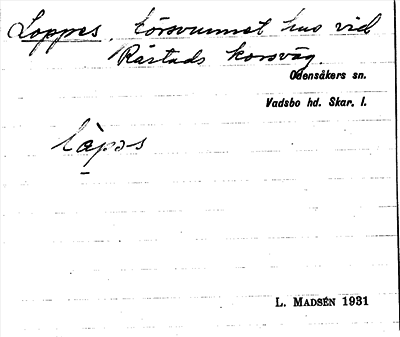 Loppes, försvunnet hus vid
Råstads korsväg
Odensåkers sn.
Vadsbo hd. Skar. l.
làpəs
L. MADSÉN 1931